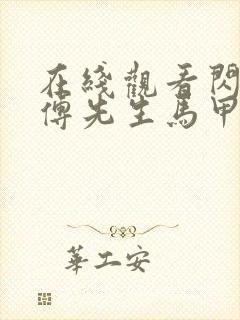 在綫觀看閃
傅先生馬甲
華工安